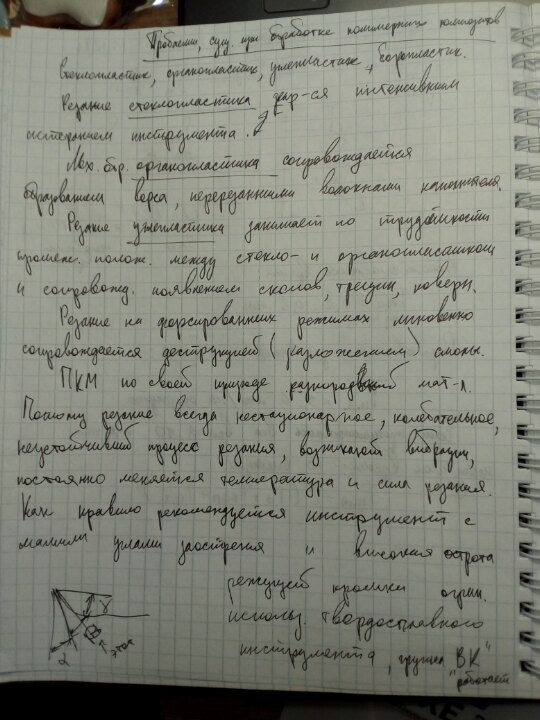 Проблемы, сущ. при обработке полимерных композитов
стеклопластик, органопластик, углепластик, боропластик.
Резание стеклопластика хар-ся интенсивным
истиранием инструмента.
Мех. обр. органопластика сопровождается
образованием ворса, перерезанными волокнами наполнителя.
Резание углепластика занимает по трудоёмкости
промеж. полож. между стекло- и органопластиком
и сопровожд. появлением сколов, трещин, каверн.
Резание на форсированных режимах мгновенно
сопровождается деструкцией (разложением) смолы.
ПКМ по своей природе разнородный мат-л.
Поэтому резание всегда нестационарное, колебательное,
неустойчивый процесс резания, возникают вибрации,
постоянно меняется температура и сила резания.
Как правило рекомендуется инструмент с
малыми углами заострения и высокая острота
режущей кромки огран.
использ. твердосплавного
инструмента, группа "ВК"
работает
γ
β
α
этот